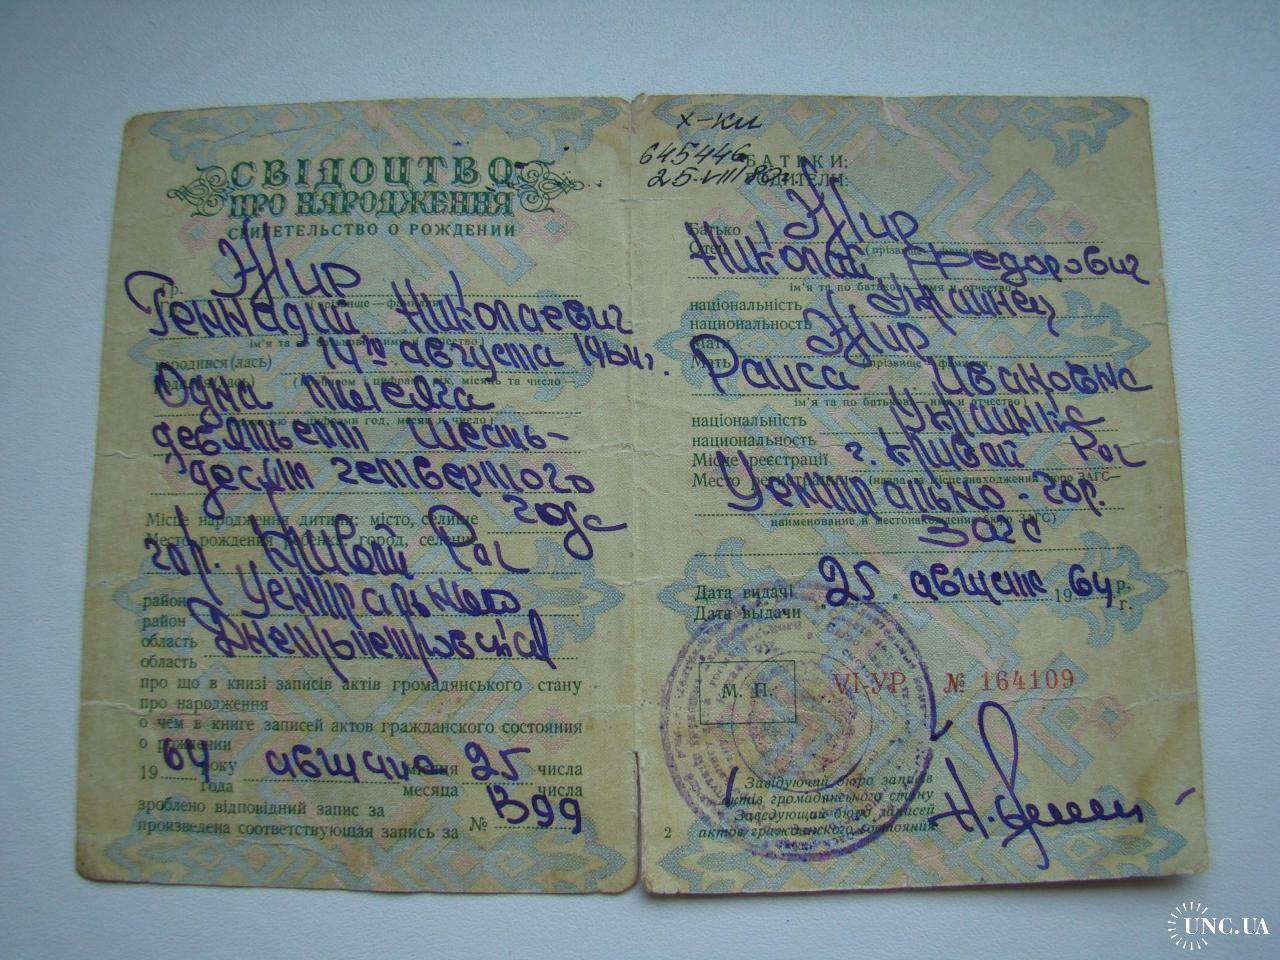 СВІДОЦТВО
ПРО НАРОДЖЕННЯ
СВИДЕТЕЛЬСТВО О РОЖДЕНИИ
Гр. Жир
прізвище — фамилия
Геннадий Николаевич
ім'я та по батькові — имя и отчество
народився (лась) 14го августа 1964 г.
родился (лась) (прописом і цифрами рік, місяць та число —
Одна тысяча
прописью и цифрами год, месяц и число)
девятьсот шесть-
десят четвертого
года
Місце народження дитини: місто, селище
Место рождения ребенка: город, селение
гор. Кривой Рог
район Центрального
район
область Днепропетровская
область
про що в книзі записів актів громадянського стану
про народження
о чем в книге записей актов гражданского состояния
о рождении
19 64 року августа місяця 25 числа
года месяца числа
зроблено відповідний запис за
произведена соответствующая запись за № 1399
х-ки
645446
25.VIII 80г.
БАТЬКИ:
РОДИТЕЛИ:
Батько Жир
Отец (прізвище — фамилия)
Николай Федорович
ім'я та по батькові — имя и отчество)
національність Украинец
национальность
Мати Жир
Мать (прізвище — фамилия,
Раиса Ивановна
ім'я та по батькові — имя и отчество)
національність Украинка
национальность
Місце реєстрації г. Кривой Рог
Место регистрации (назва та місцезнаходження бюро ЗАГС—
Центрально-гор.
наименование и местонахождение бюро ЗАГС)
Загс
Дата видачі 25 августа 1964 р.
Дата выдачи г.
М. П.
VI-УР № 164109
Завідуючий бюро записів
актів громадянського стану
Заведующий бюро записей
актов гражданского состояния
2
UNC.UA